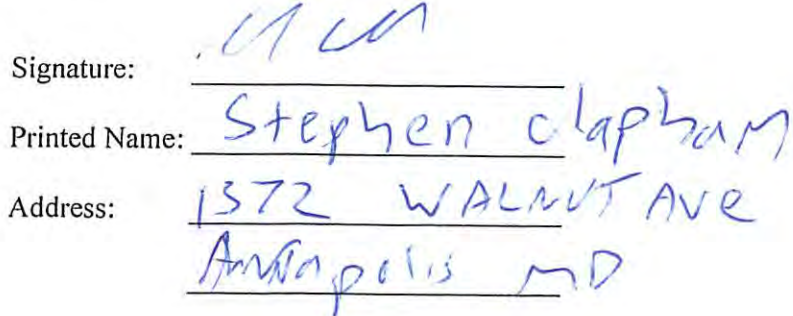 Signature:
Printed Name: Stephen clapham
Address: 1372 WALNUT Ave
Annapolis MD